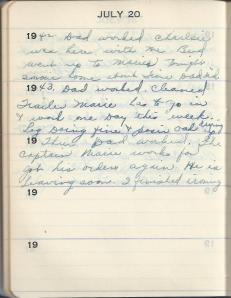 JULY 20
1942. Dad worked Charlsie
was here with me Bud
went up to Maries Tonight
came home about
1943. Dad worked. Cleaned
Trailer Marie has to go in
& work one Day this week.
Leg Doing fine &
19 Thur. Dad worked. The
Captain Marie works for
got his orders again He is
leaving soon. I finished ironing
19
19